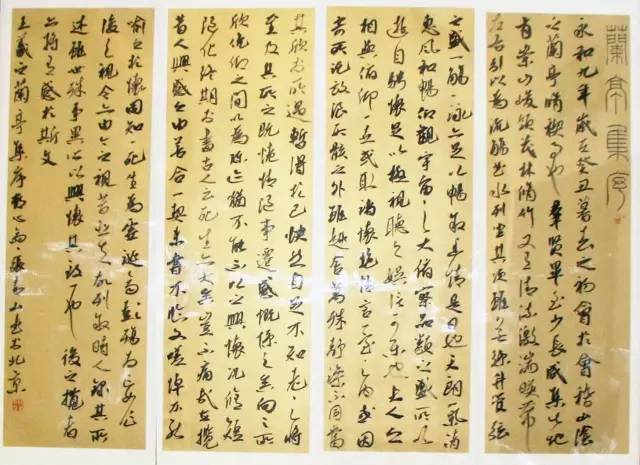 蘭亭集序
永和九年歲在癸丑暮春之初會於會稽山陰
之蘭亭脩禊事也群賢畢至少長咸集此地
有崇山峻領茂林脩竹又有清流激湍暎帶
左右引以為流觴曲水列坐其次雖無絲竹管弦
之盛一觴一詠亦足以暢敘幽情是日也天朗氣清
惠風和暢仰觀宇宙之大俯察品類之盛所以
遊目騁懷足以極視聽之娛信可樂也夫人之
相與俯仰一世或取諸懷抱悟言一室之內或因
寄所託放浪形骸之外雖趣舍萬殊靜躁不同當
其欣於所遇暫得於己快然自足不知老之將
至及其所之既惓情隨事遷感慨係之矣向之所
欣俛仰之間以為陳迹猶不能不以之興懷況脩短
隨化終期於盡古人云死生亦大矣豈不痛哉每攬
昔人興感之由若合一契未嘗不臨文嗟悼不能
喻之於懷固知一死生為虛誕齊彭殤為妄作
後之視今亦由今之視昔悲夫故列敘時人錄其所
述雖世殊事異所以興懷其致一也後之攬者
亦將有感於斯文
王羲之蘭亭集序 書於北京